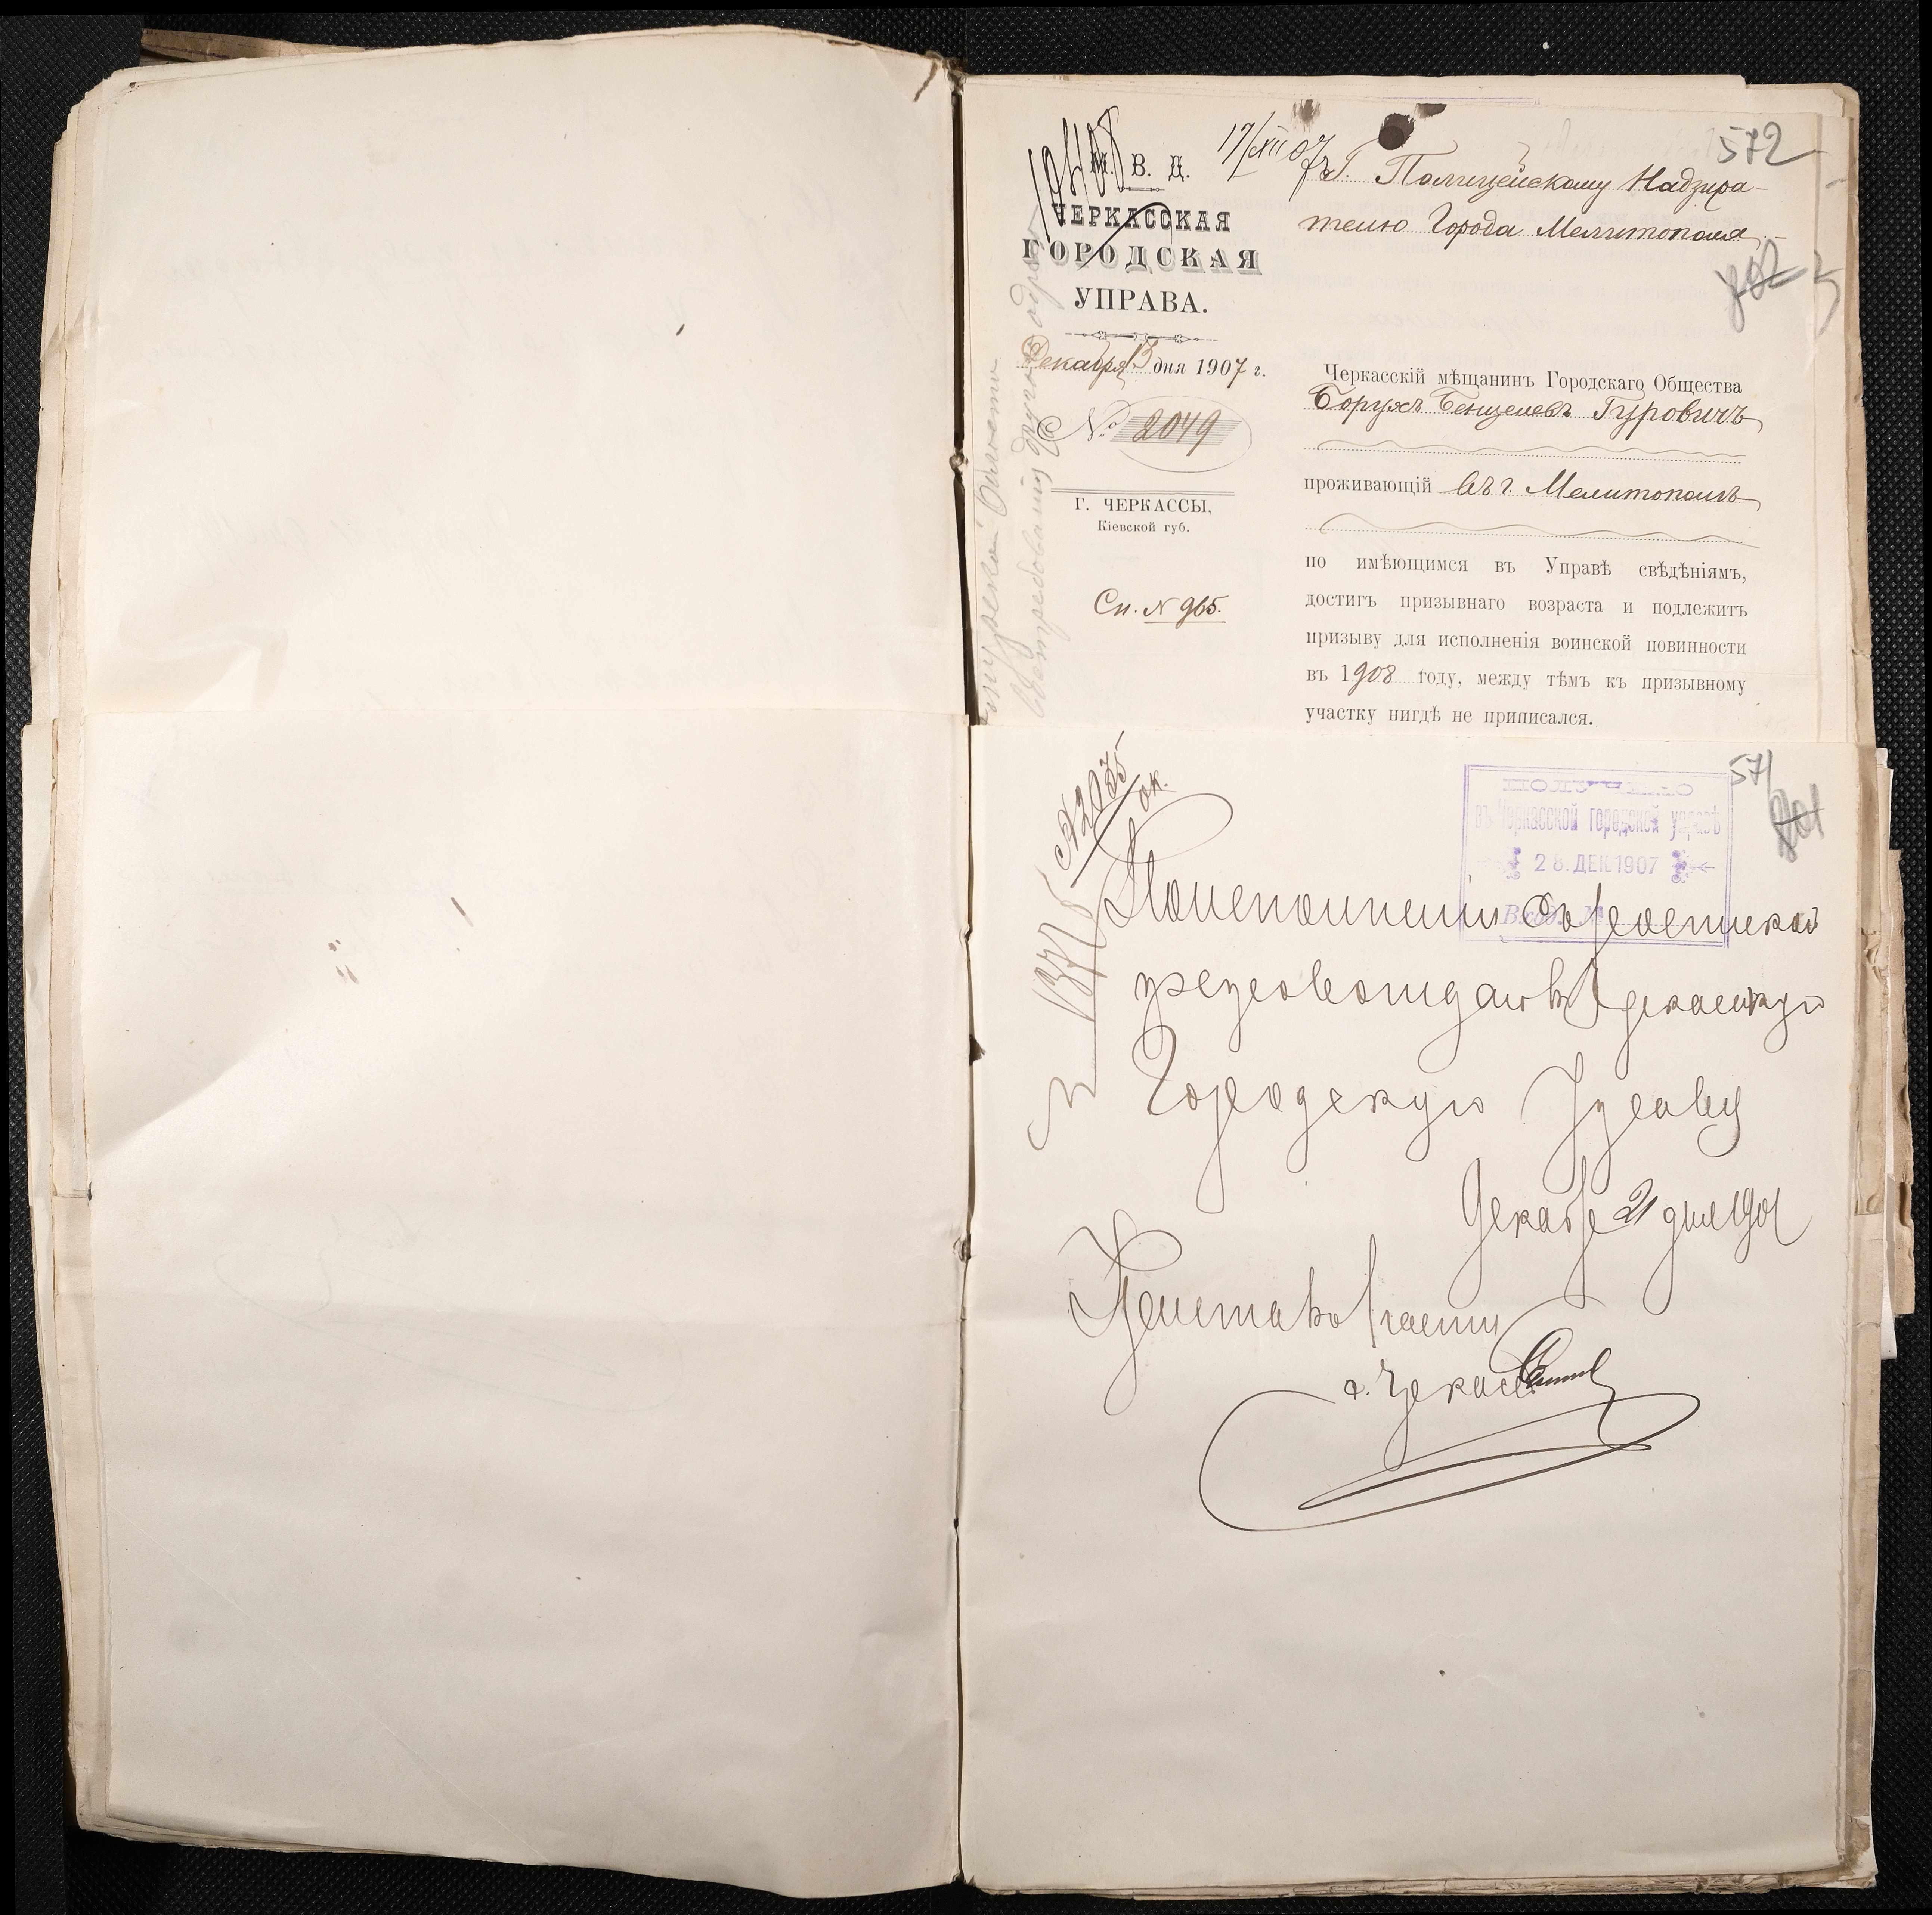 М. В. Д.
ЧЕРКАССКАЯ
ГОРОДСКАЯ
УПРАВА.
Декабря 13 дня 1907 г.
№ 2049
Г. ЧЕРКАССЫ,
Кіевской губ.
Сп. № 965.
17/XII 07
572
Г. Полицейскому Надзира-
телю Города Мелитополя
702
Черкасскій мѣщанинъ Городскаго Общества
Борухъ Бенцелевъ Гуровичъ
проживающій въ г. Мелитополѣ
по имѣющимся въ Управѣ свѣдѣніямъ,
достигъ призывнаго возраста и подлежитъ
призыву для исполненія воинской повинности
въ 1908 году, между тѣмъ къ призывному
участку нигдѣ не приписался.
571
701
№ 2035
ПОЛУЧЕНО
въ Черкасской городской управѣ
28. ДЕК. 1907
Вход. №
По исполненіи съ распиской
препровождаю въ Черкасскую
Городскую Управу
Декабря 21 дня 190
Приставъ части
г. Черкасс